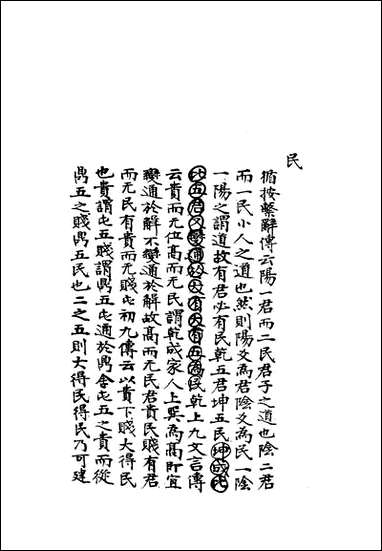 民
循按繫辭傳云陽一君而二民君子之道也陰二君
而一民小人之道也然則陽爻為君陰爻為民一陰
一陽之謂道故有君必有民乾五君坤五民坤成
比五君又變通於大有大有五為民乾上九文言傳
云貴而无位髙而无民謂乾成家人上巽為髙即宜
變通於解不變通於解故髙而无民君貴民賤有君
而无民有貴而无賤屯初九傳云以貴下賤大得民
也貴謂屯五賤謂鼎五屯通於鼎舍屯五之貴而從
鼎五之賤鼎五民也二之五則大得民得民乃可建